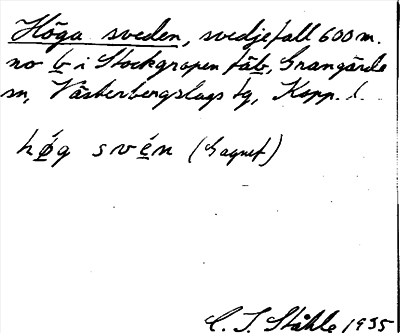 Höga sveden, svedjefall 600 m.
no b i Stockgropen fäb, Grangärde
sn, Västerbergslags tg, Kopp. l.
hǿg svén (Sagnet)
C. I. Ståhle 1935